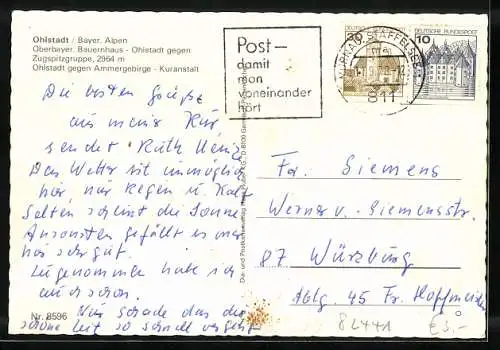 Ohlstadt / Bayer. Alpen
Oberbayer. Bauernhaus - Ohlstadt gegen
Zugspitzgruppe, 2964 m
Ohlstadt gegen Ammergebirge - Kuranstalt
Post –
damit
man
voneinander
hört
MURNAU STAFFELSEE
811
DEUTSCHE BUNDESPOST
10
Die besten Grüße
aus meiner Kur
sendet Ruth
Das Wetter ist unmöglich
hier, nur Regen u. Kalt
Selten scheint die Sonne
Ansonsten gefällt es mir
hier sehr gut.
Zugenommen habe ich
auch schon.
Nur schade das die
schöne Zeit so schnell vergeht
Fr. Siemens
Werner v. Siemensstr.
87 Würzburg
Abtlg. 45 Fr. Hoffmeister
Nr. 8596
82441
€ 3,-